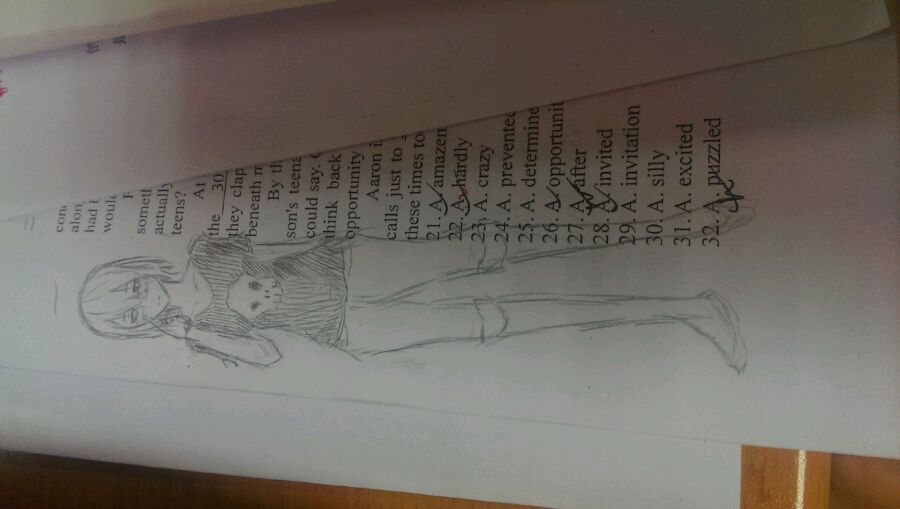 con
alon
had i
would
F
somet
actually
teens?
At
the 30
they clap
beneath m
By th
son's teena
could say.
think back
opportunity
Aaron i
calls just to
these times to
21. A. amazem
22. A. hardly
23. A. crazy
24. A. prevented
25. A. determine
26. A. opportunit
27. A. after
28. A. invited
29. A. invitation
30. A. silly
31. A. excited
32. A. puzzled